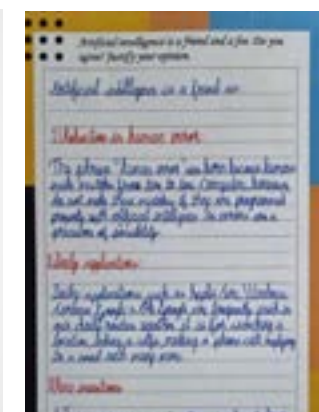 Artificial intelligence is a friend and a foe. Do you
agree? Justify your opinion.
Artificial intelligence as a friend
Reduction in human error
The phrase "human error" was born because humans
make mistakes from time to time. Computers, however,
do not make these mistakes if they are programmed
properly with artificial intelligence
Daily applications
Daily applications such as Apple's Siri, Window's
Cortana, Google's OK Google are frequently used in
our daily routine it is for searching a
location, taking a selfie, making a phone call, replying
to a mail and many more.